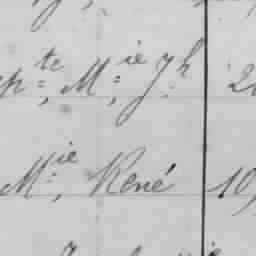 pte, Mie Jh. 2
Mie, René 10